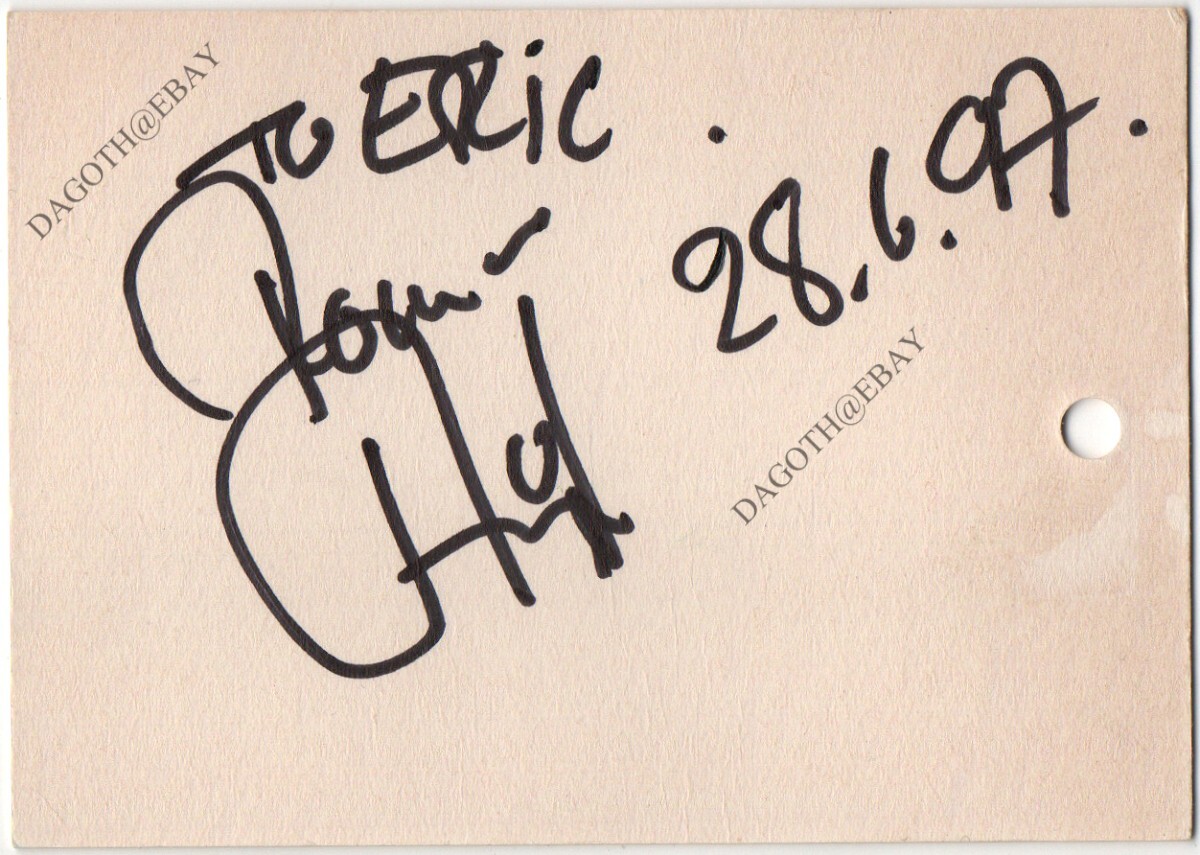 TO ERIC
28.6.97.
Robin
DAGOTH@EBAY
DAGOTH@EBAY